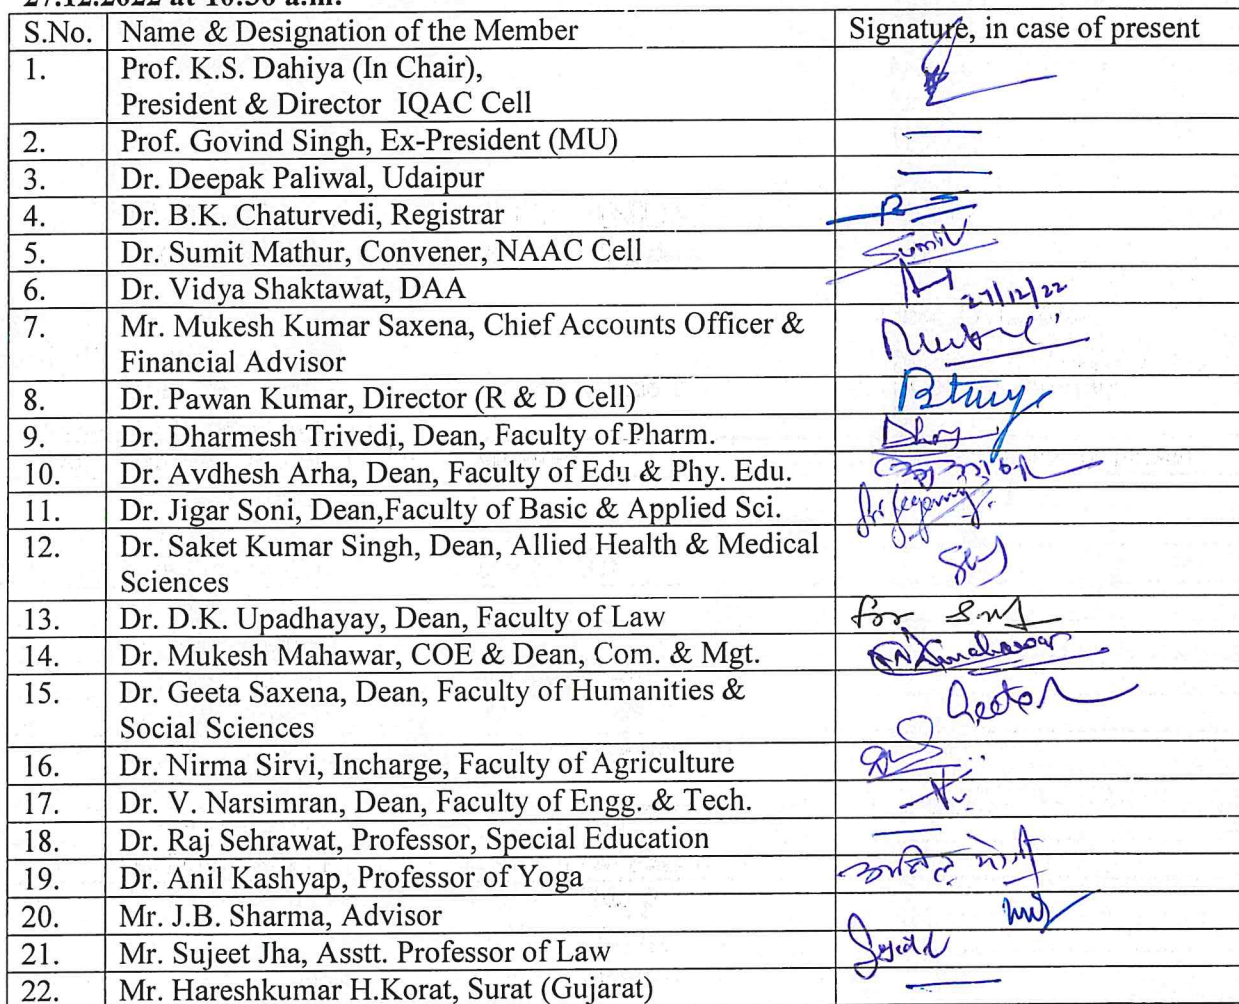 27.12.2022 at 10:30 a.m.
S.No. Name & Designation of the Member Signature, in case of present
1. Prof. K.S. Dahiya (In Chair),
President & Director IQAC Cell
2. Prof. Govind Singh, Ex-President (MU)
3. Dr. Deepak Paliwal, Udaipur
4. Dr. B.K. Chaturvedi, Registrar
5. Dr. Sumit Mathur, Convener, NAAC Cell Sumit
6. Dr. Vidya Shaktawat, DAA 27/12/22
7. Mr. Mukesh Kumar Saxena, Chief Accounts Officer &
Financial Advisor
8. Dr. Pawan Kumar, Director (R & D Cell)
9. Dr. Dharmesh Trivedi, Dean, Faculty of Pharm.
10. Dr. Avdhesh Arha, Dean, Faculty of Edu & Phy. Edu.
11. Dr. Jigar Soni, Dean,Faculty of Basic & Applied Sci.
12. Dr. Saket Kumar Singh, Dean, Allied Health & Medical
Sciences
13. Dr. D.K. Upadhayay, Dean, Faculty of Law for
14. Dr. Mukesh Mahawar, COE & Dean, Com. & Mgt.
15. Dr. Geeta Saxena, Dean, Faculty of Humanities &
Social Sciences
16. Dr. Nirma Sirvi, Incharge, Faculty of Agriculture
17. Dr. V. Narsimran, Dean, Faculty of Engg. & Tech.
18. Dr. Raj Sehrawat, Professor, Special Education
19. Dr. Anil Kashyap, Professor of Yoga
20. Mr. J.B. Sharma, Advisor
21. Mr. Sujeet Jha, Asstt. Professor of Law
22. Mr. Hareshkumar H.Korat, Surat (Gujarat)